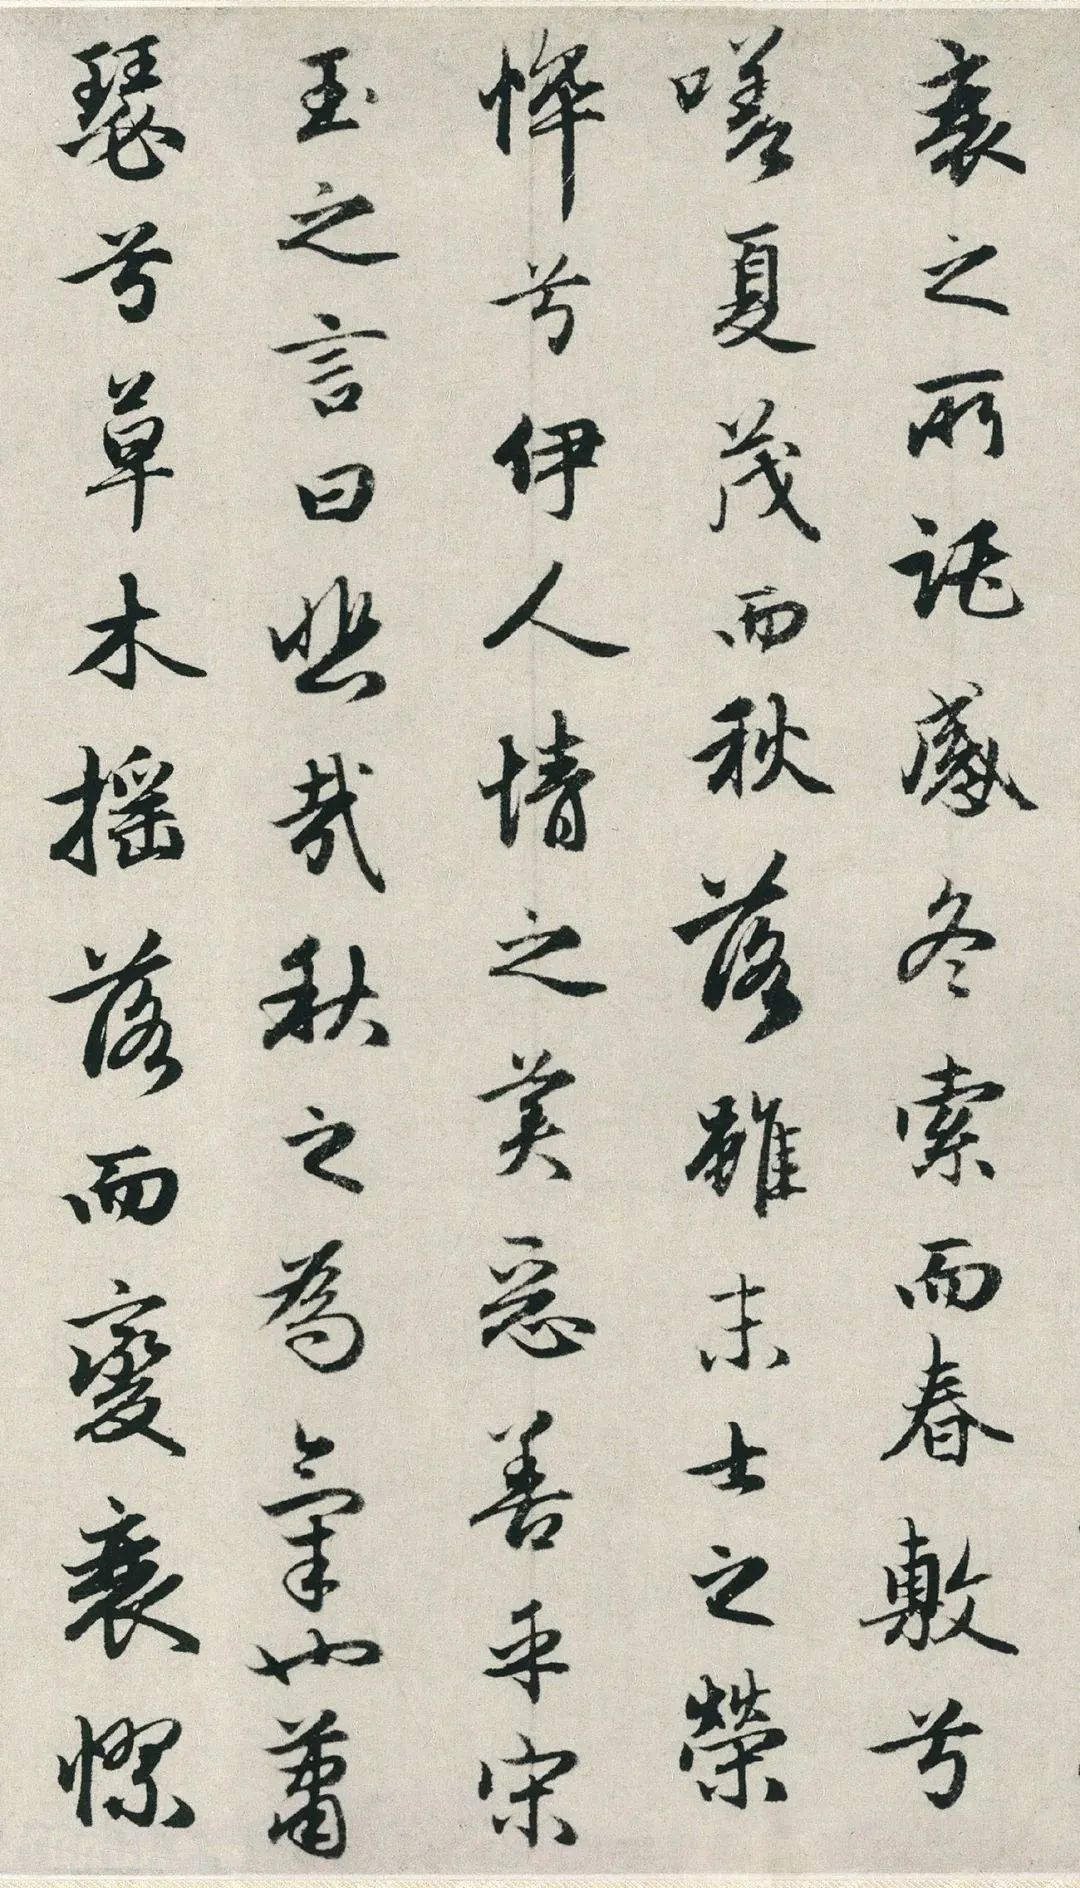 衰之所託感冬索而春敷兮
嗟夏茂而秋落雖末士之榮
悴兮伊人情之美惡善乎宋
玉之言曰悲哉秋之為氣也蕭
瑟兮草木搖落而變衰憀